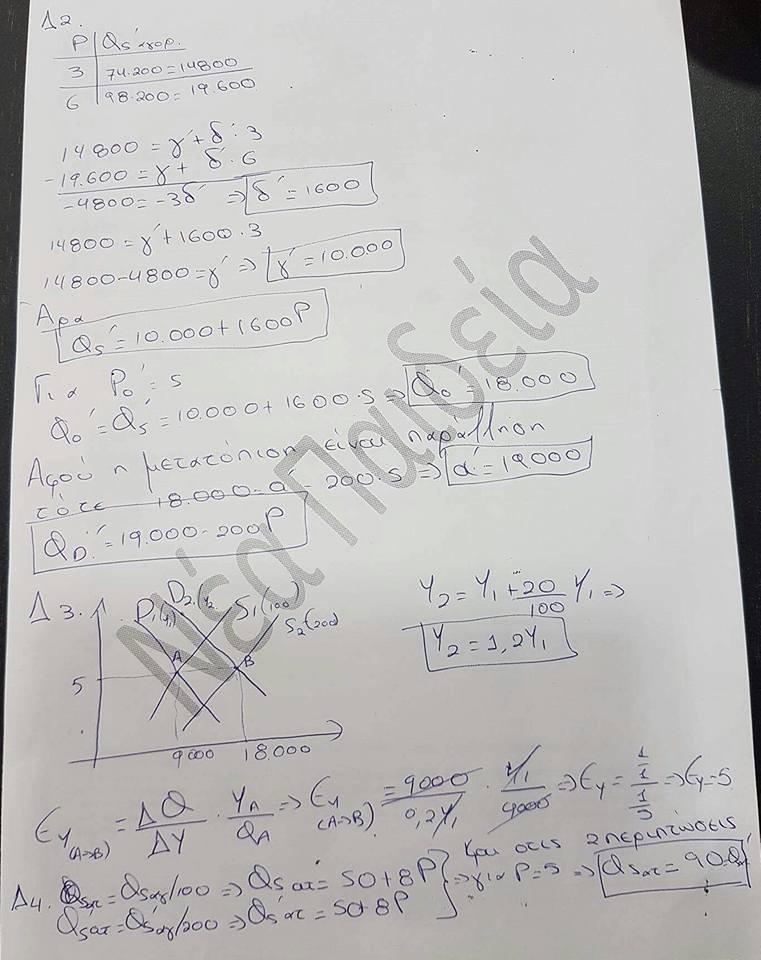 Δ2.
P | Qs'αγορ.
3 | 74.200=14800
6 | 98.200=19.600
14800=γ'+δ'.3
-19.600=γ'+δ'.6
-4800=-3δ' => δ'=1600
14800=γ'+1600.3
14800-4800=γ' => γ'=10.000
Αρα
Qs'=10.000+1600P
Για Po'=5
Qo'=Qs'=10.000+1600.5 => Qo'=18.000
Αφού η μετατόπιση είναι παράλληλη
τότε 18.000=α'-200.5 => α'=19.000
QD'=19.000-200P
Δ3.
D1(y1) D2(y2) S1(100) S2(200)
A B
5
9000 18.000
Y2=Y1+20/100 Y1 =>
Y2=1,2Y1
EY(A->B) = ΔQ/ΔY . YA/QA => EY(A->B) = 9000/0,2Y1 . Y1/9000 => EY = 1/1/1/5 => EY=5
Δ4. Qsατ=Qsαγ/100 => Qsατ=50+8P
Qs'ατ=Qs'αγ/200 => Qs'ατ=50+8P
και στις 2 περιπτώσεις
=> για P=5 => Qsατ=90
Νέα Παιδεία